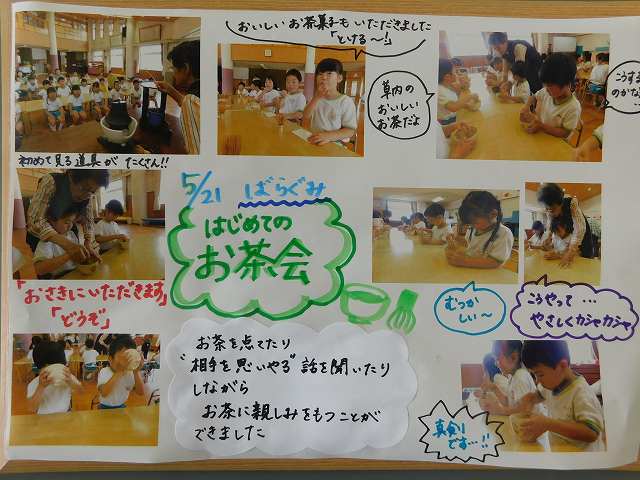 おいしいお茶菓子もいただきました
「とける～!」
草内の
おいしい
お茶だよ
こうする
のかな
初めて見る道具がたくさん!!
5/21 ばらぐみ
はじめての
お茶会
「おさきにいただきます」
「どうぞ」
むつか
しい～
こうやって…
やさしくカシャカシャ
お茶を点てたり
"相手を思いやる"話を聞いたり
しながら
お茶に親しみをもつことが
できました
真剣
です…!!